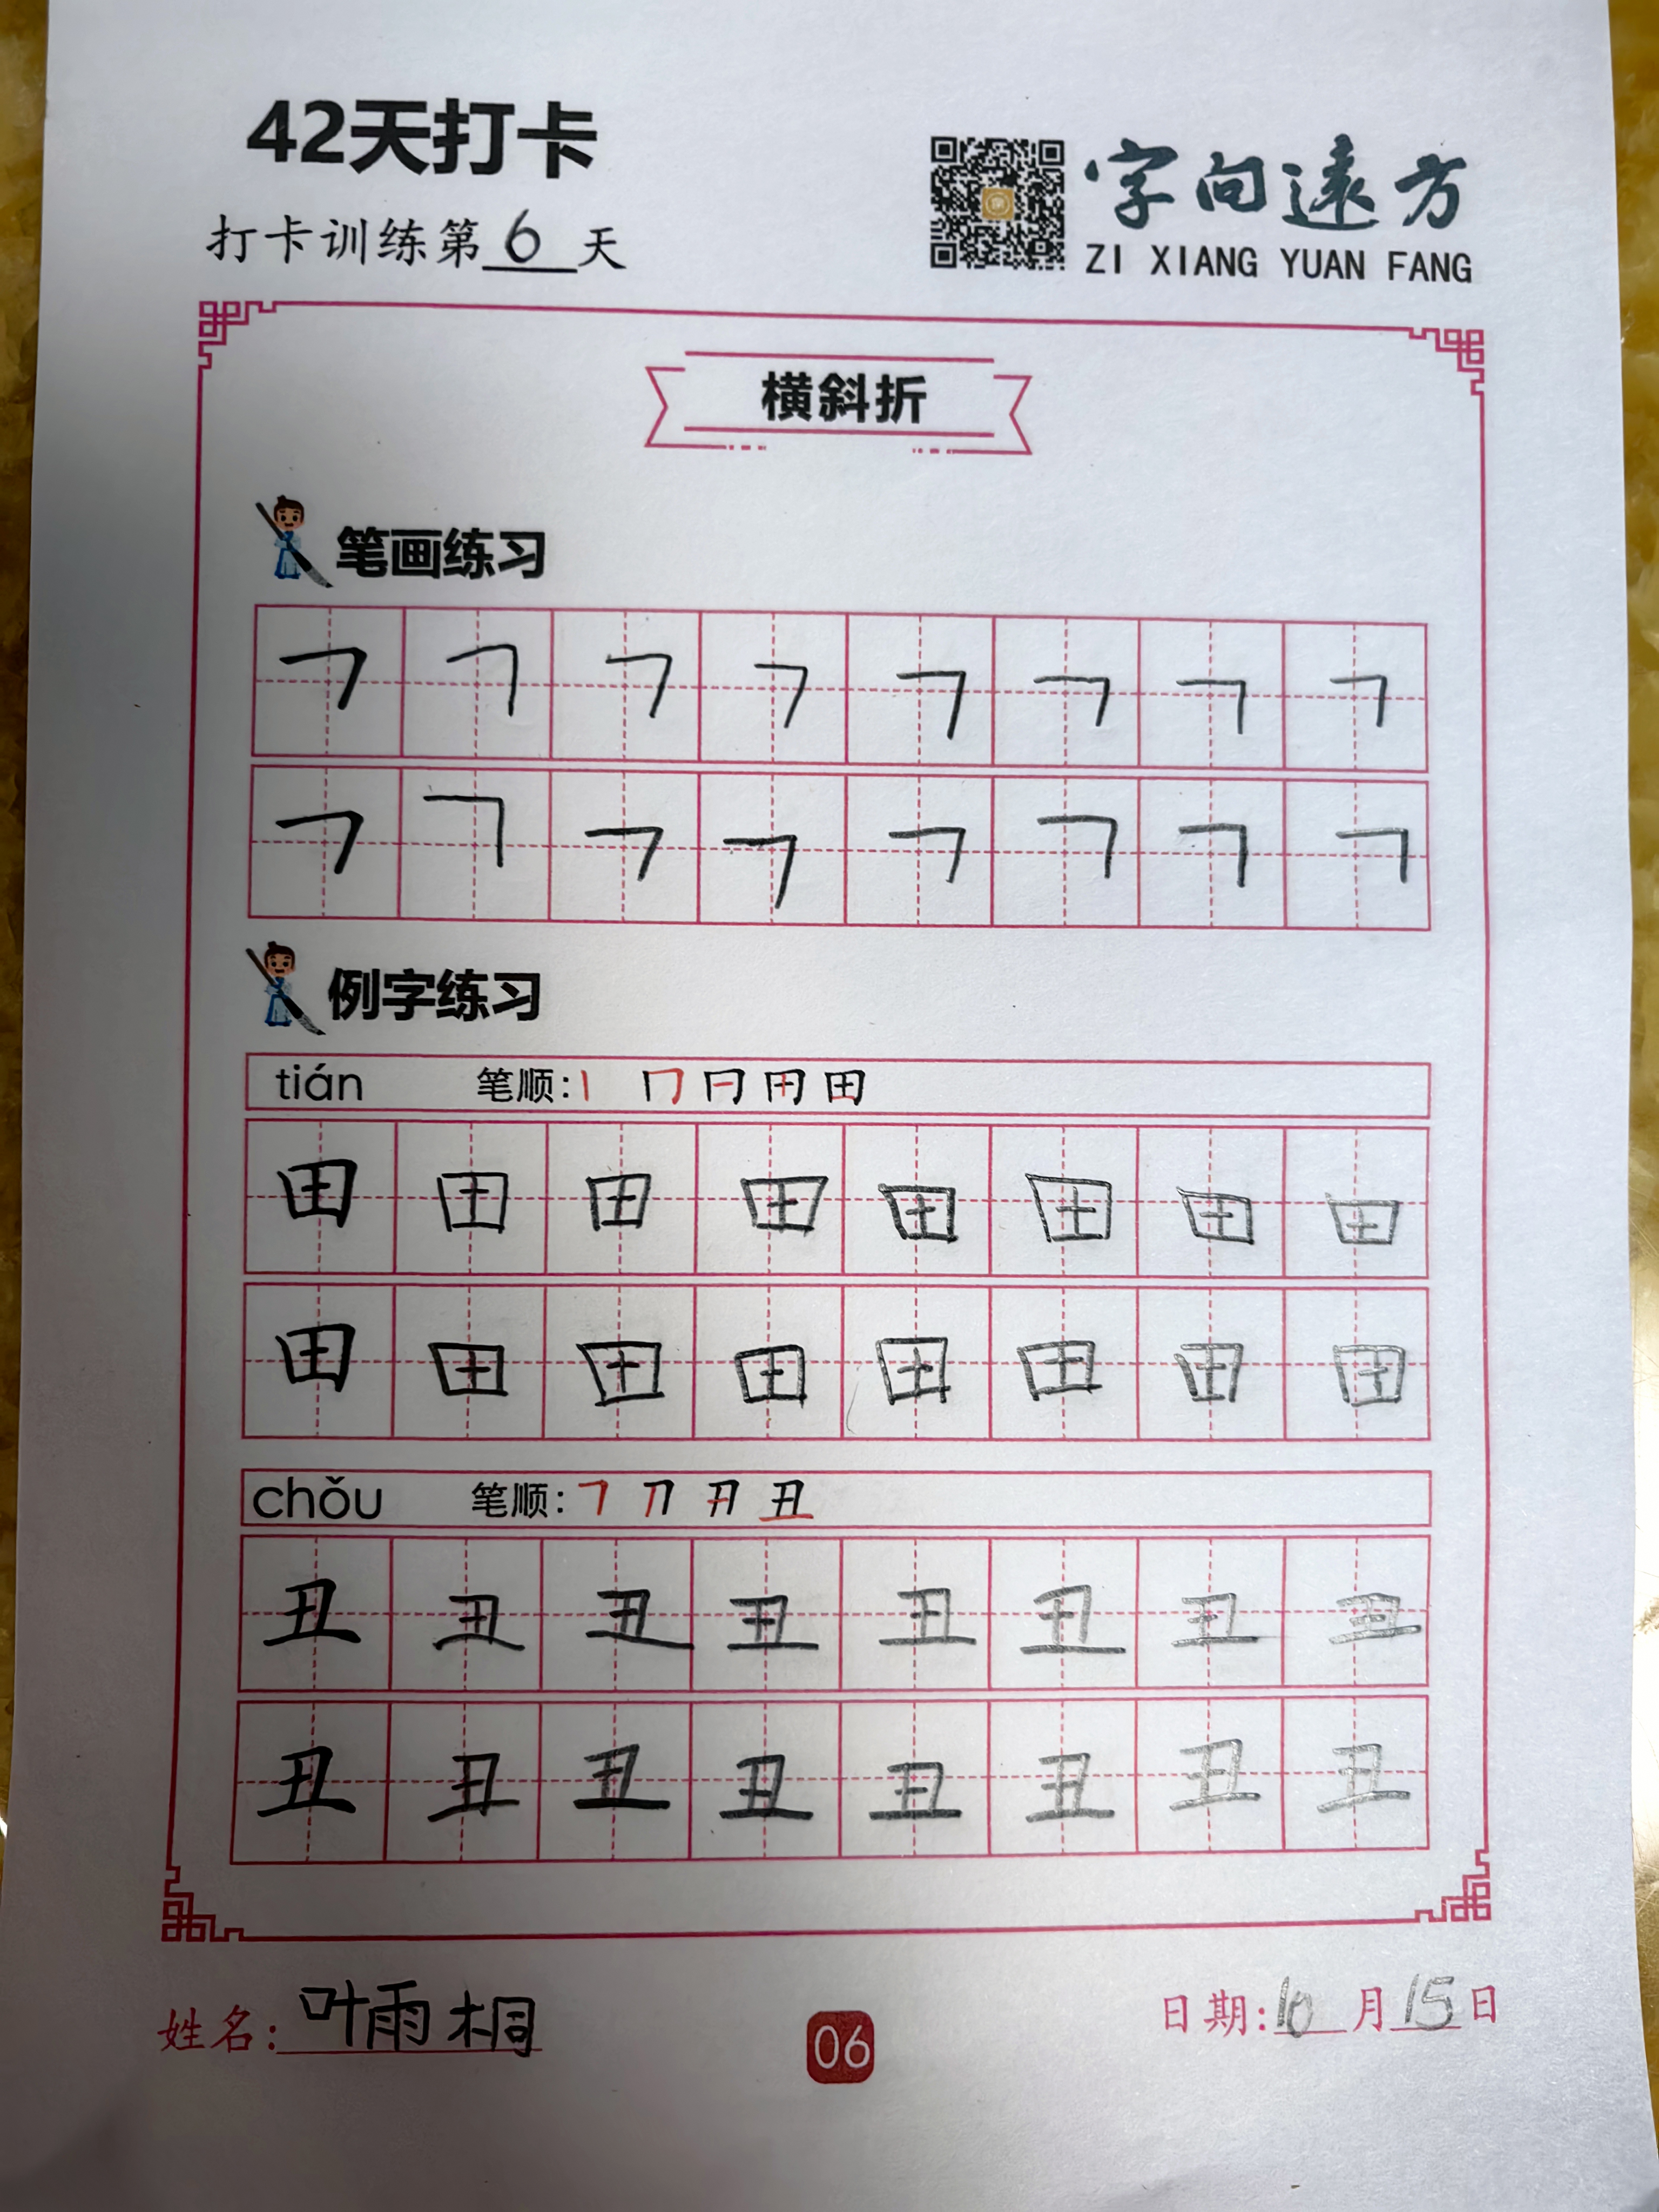 42天打卡
打卡训练第6天
字向遠方
ZI XIANG YUAN FANG
横斜折
笔画练习
㇕ ㇕ ㇕ ㇕ ㇕ ㇕ ㇕ ㇕
㇕ ㇕ ㇕ ㇕ ㇕ ㇕ ㇕ ㇕
例字练习
tián 笔顺:
田 田 田 田 田 田 田 田
田 田 田 田 田 田 田 田
chǒu 笔顺:
丑 丑 丑 丑 丑 丑 丑 丑
丑 丑 丑 丑 丑 丑 丑 丑
姓名:叶雨桐
06
日期:10月15日